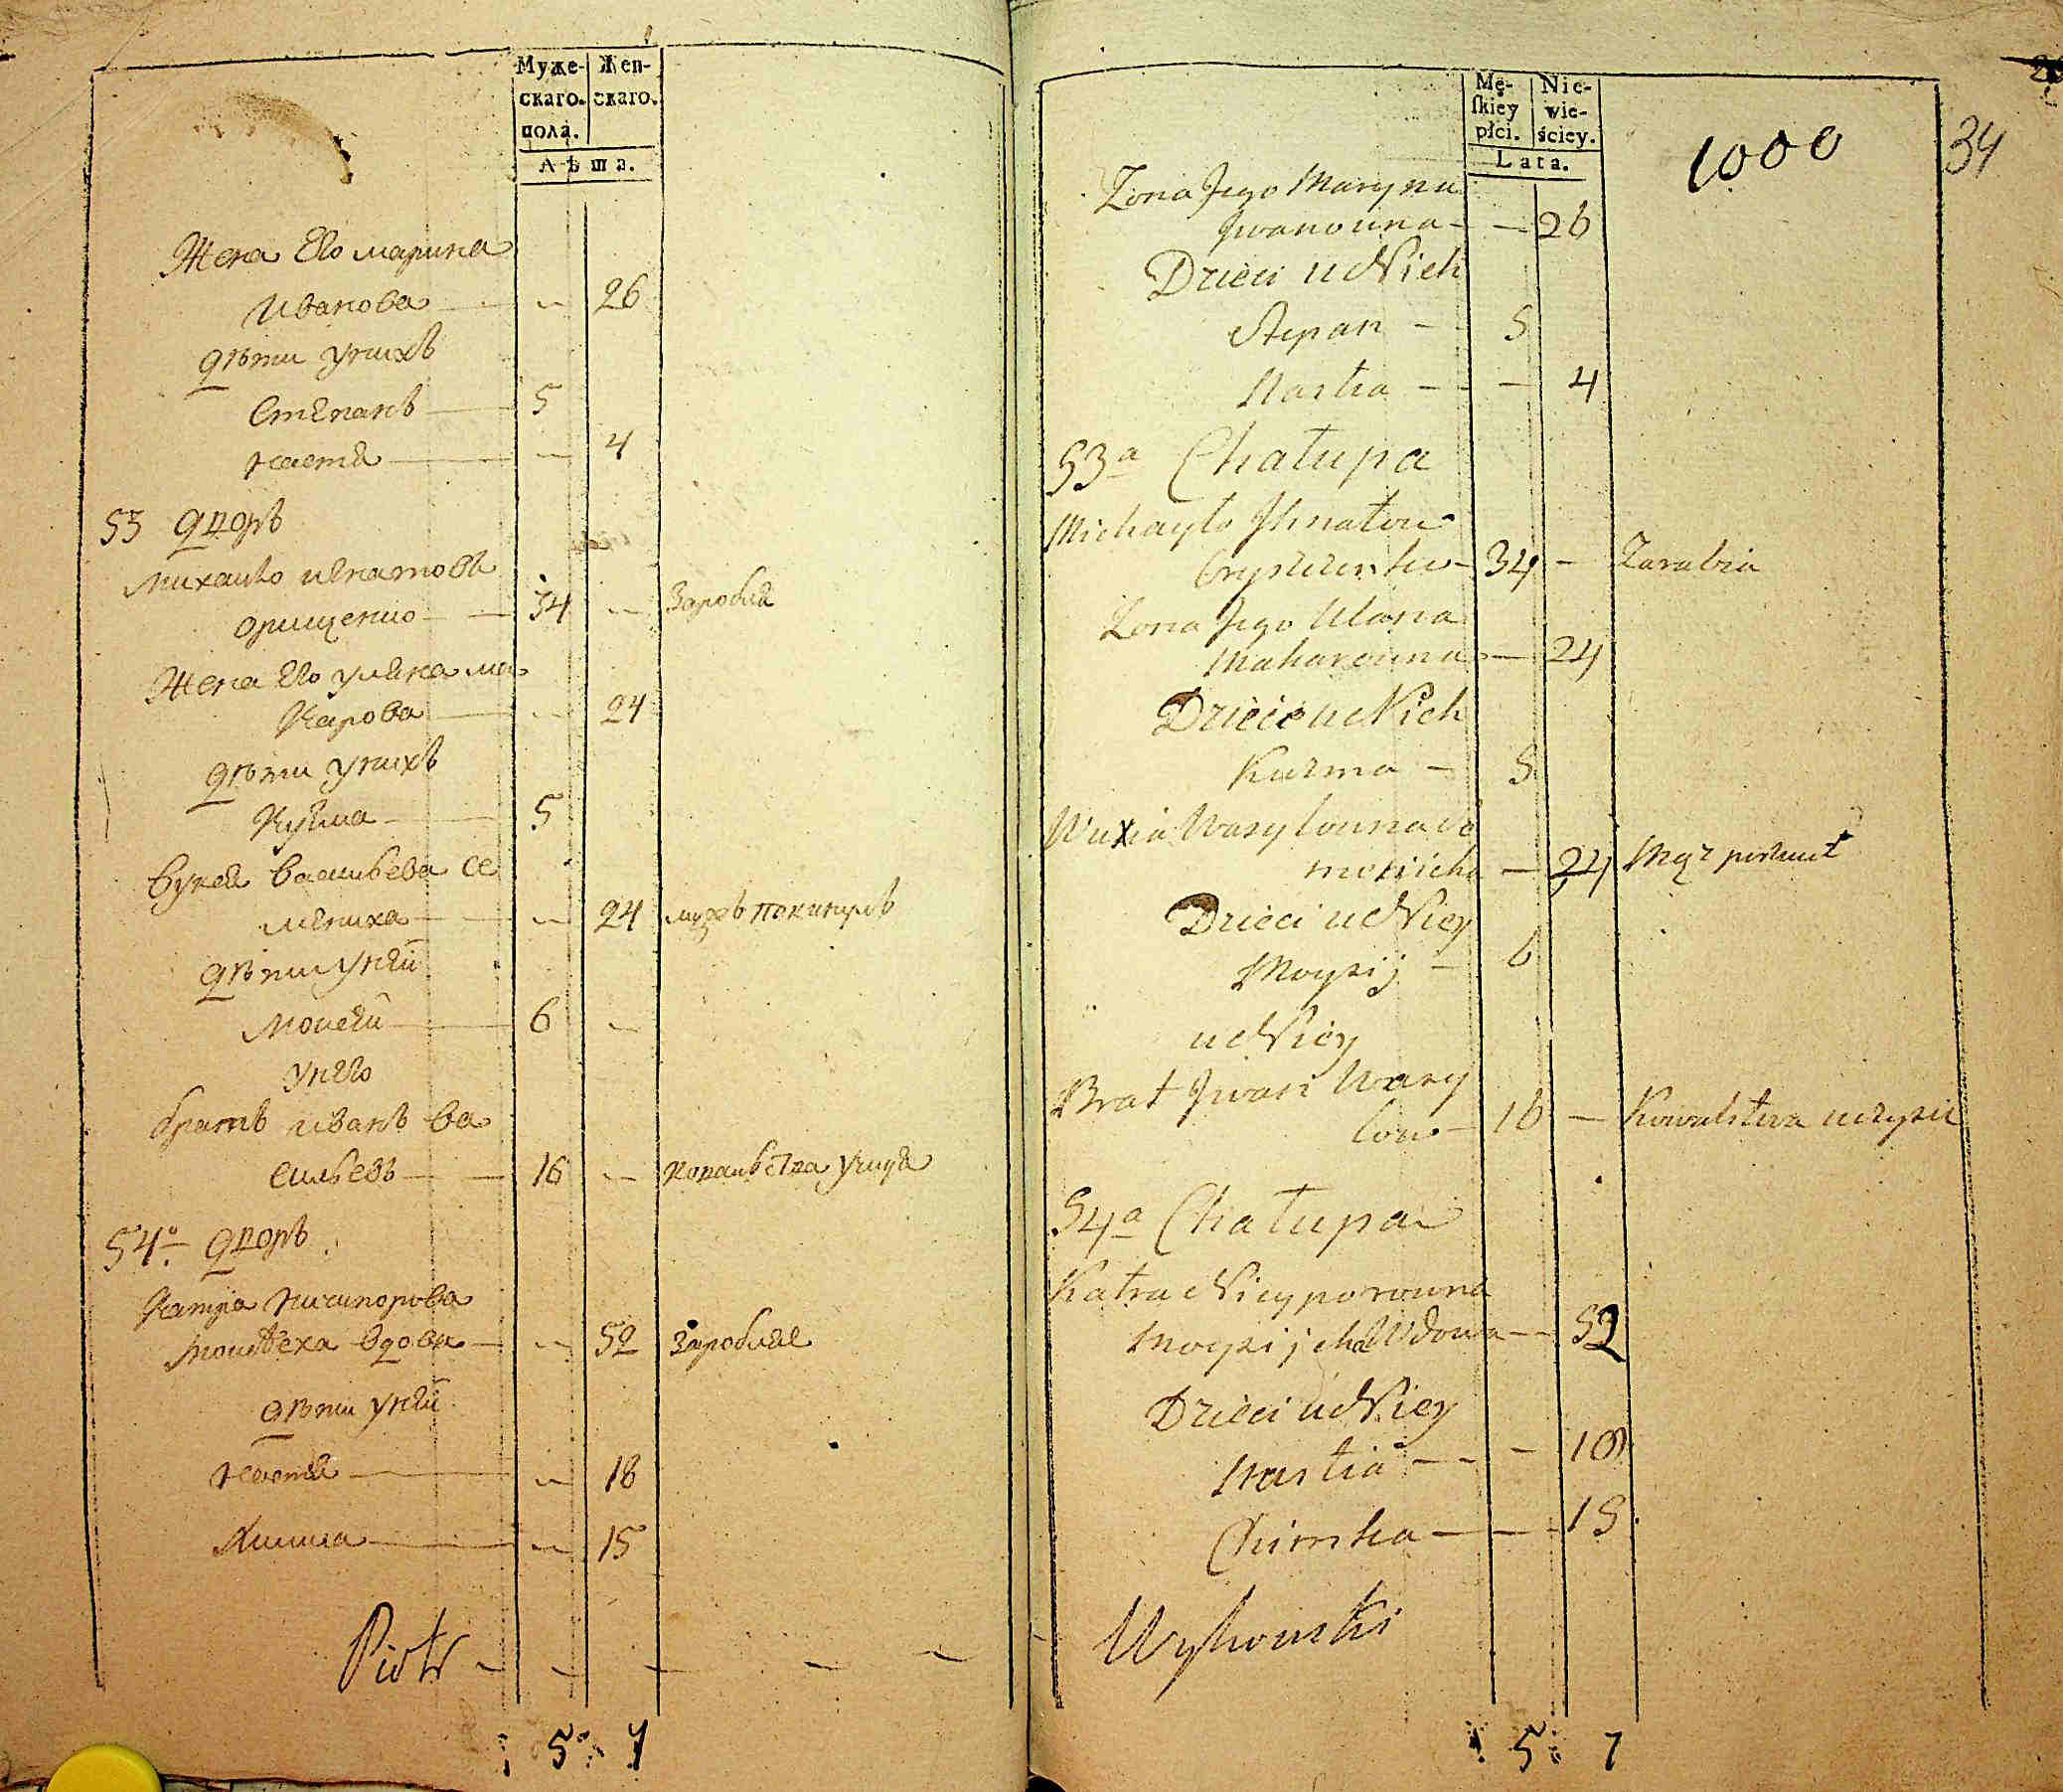 Муже- Жен-
скаго. скаго.
пола.
Лѣта.
Жена Его марина
Иванова — — 26
дѣти унихъ
Степанъ — 5
Настя — — 4
53 дворъ
Михаило игнатовъ
Орищенко — 34 — Заробля
Жена Его уляна ма
карова — — 24
дѣти унихъ
Кузма — 5
Вукля Васильева се
мениха — — 24 мужъ покинулъ
дѣти уней
Моисей — 6 —
унего
братъ иванъ ва
сильевъ — 16 — ковальства учица
54о дворъ
Катра ничипорова
Моисеха вдова — — 52 Заробляе
дѣти уней
Настя — — 18
Химка — — 15
Piotr - - - - -
5 7
Mę- Nie-
ſkiey wie-
płci. ściey.
Lata.
1000
34
Zona Jego Maryna
Jwanowna - — 26
Dzieci u Nich
Stepan - 5
Nastia - — 4
53a Chałupa
Michayło Ihnatow
Oryszczenko - 34 - Zarabia
Zona Jego Ulana
Makarowna - — 24
Dzieci u Nich
Kuzma - 5
Wasylowna Se
menicha — 24 Mąz porzucił
Dzieci u Niey
Moysij - 6
u Niey
Brat Jwan Wasy
low - 16 — Kowalstwa uczysie
54a Chałupa
Katra Niczyporowna
Moysijcha Wdowa — 52
Dzieci u Niey
Nastia - - - 18
Chimka — — 15
Wyhowski
5 7